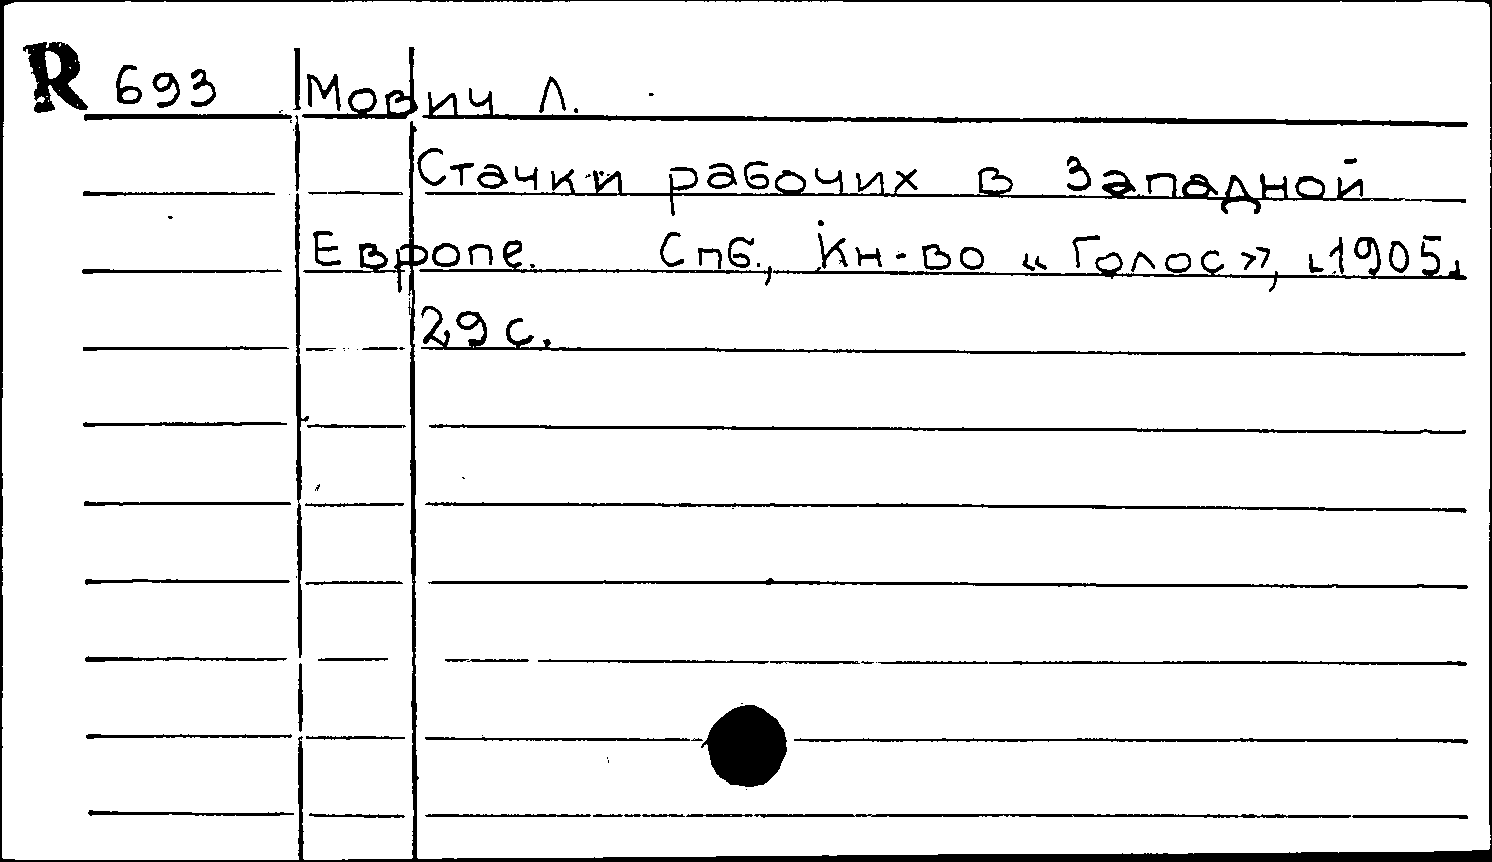 R 693 Мович Л.
Стачки рабочих в Западной
Европе. Спб., Кн-во «Голос», 1905.
29 с.